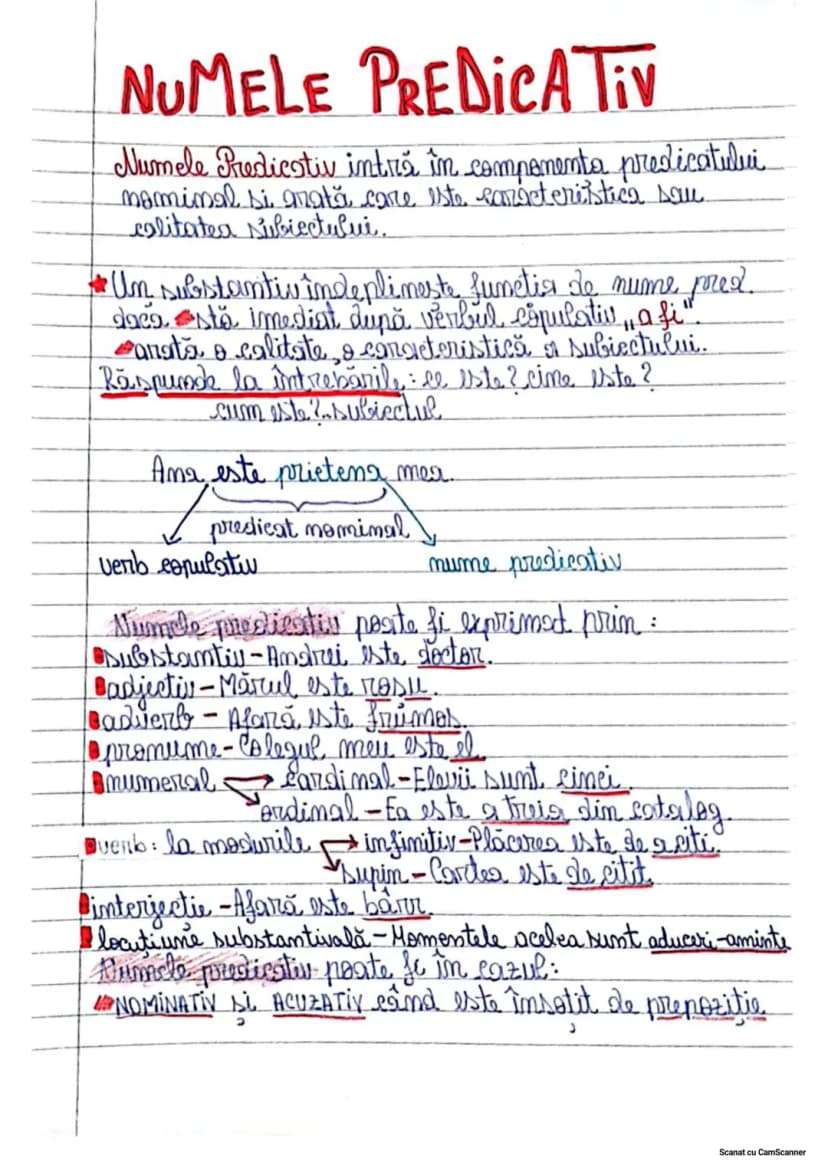 NUMELE PREDICATIV
Numele Predicativ intră în componenta predicatului
nominal si arată care este caracteristica sau
calitatea subiectului.
Un substantiv îndeplineste functia de nume pred.
dacă stă imediat după verbul copulativ „a fi".
arată o calitate, o caracteristică a subiectului.
Răspunde la întrebările: ce este? cine este?
cum este?..subiectul
Ana este prietena mea.
predicat nominal
verb copulativ nume predicativ
Numele predicativ poate fi exprimat prin:
substantiv - Andrei este doctor.
adjectiv - Mărul este rosu.
adverb - Afară este frumos.
pronume - Colegul meu este el.
numeral → cardinal - Elevii sunt cinci.
ordinal - Ea este a treia din catalog.
verb: la modurile → infinitiv - Plăcerea este de a citi.
supin - Cartea este de citit.
interjectie - Afară este bârr.
locuțiune substantivală - Momentele acelea sunt aduceri-aminte
Numele predicativ poate fi în cazul:
NOMINATIV și ACUZATIV când este însoțit de prepoziție
Scanat cu CamScanner